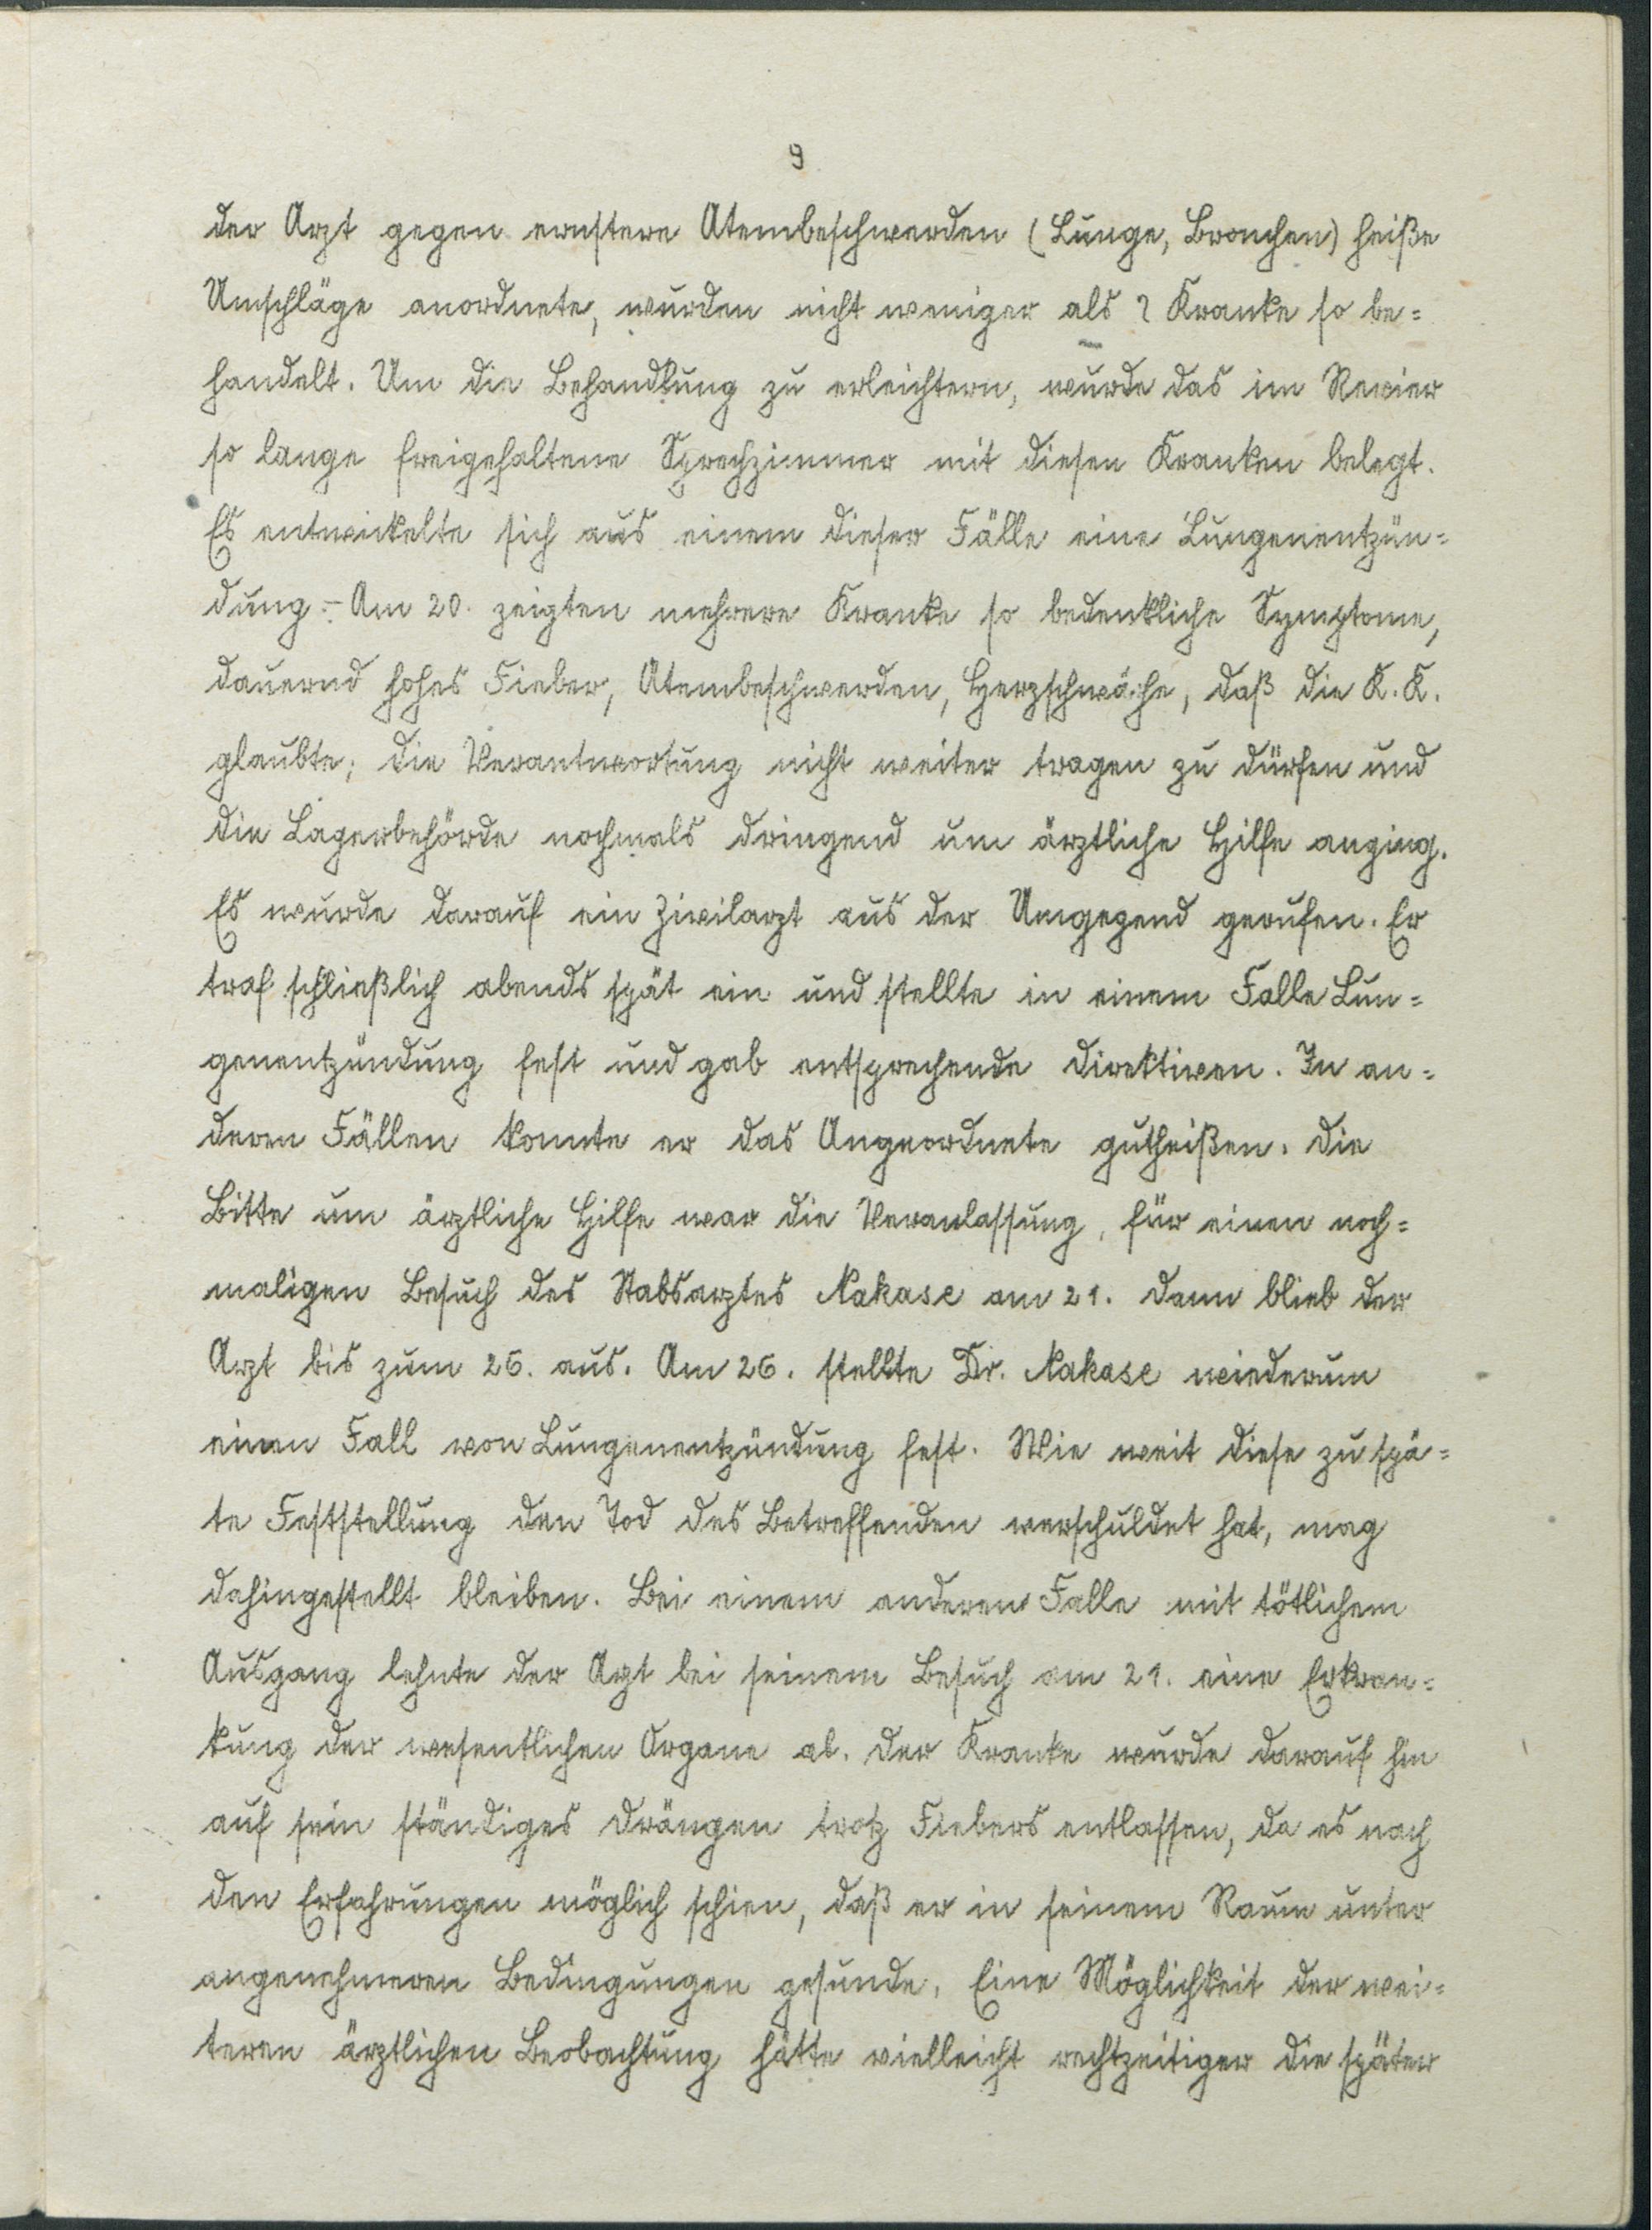 9
der Arzt gegen ernstere Atembeschwerden (Lunge, Bronchen) heiße
Umschläge anordnete, wurden nicht weniger als 7 Kranke so be=
handelt. Um die Behandlung zu erleichtern, wurde das im Revier
so lange freigehaltene Sprechzimmer mit diesen Kranken belegt.
Es entwickelte sich aus einem dieser Fälle eine Lungenentzün=
dung.- Am 20. zeigten mehrere Kranke so bedenkliche Symptome,
dauernd hohes Fieber, Atembeschwerden, Herzschwäche, daß die K.K.
glaubte; die Verantwortung nicht weiter tragen zu dürfen und
die Lagerbehörde nochmals dringend um ärztliche Hilfe anging.
Es wurde darauf ein Zivilarzt aus der Umgegend gerufen. Er
traf schließlich abends spät ein und stellte in einem Falle Lun=
genentzündung fest und gab entsprechende Direktiven. In an=
deren Fällen konnte er das Angeordnete gutheißen. Die
Bitte um ärztliche Hilfe war die Veranlassung, für einen noch=
maligen Besuch des Stabsarztes Nakase am 21. Dann blieb der
Arzt bis zum 26. aus. Am 26. stellte Dr. Nakase wiederum
einen Fall von Lungenentzündung fest. Wie weit diese zu spä=
te Feststellung den Tod des Betreffenden verschuldet hat, mag
dahingestellt bleiben. Bei einem anderen Falle mit tötlichem
Ausgang lehnte der Arzt bei seinem Besuch am 21. eine Erkran=
kung der wesentlichen Organe ab. Der Kranke wurde darauf hin
auf sein ständiges Drängen trotz Fiebers entlassen, da es nach
den Erfahrungen möglich schien, daß er in seinem Raum unter
angenehmeren Bedingungen gesunde. Eine Möglichkeit der wei=
teren ärztlichen Beobachtung hätte vielleicht rechtzeitiger die später